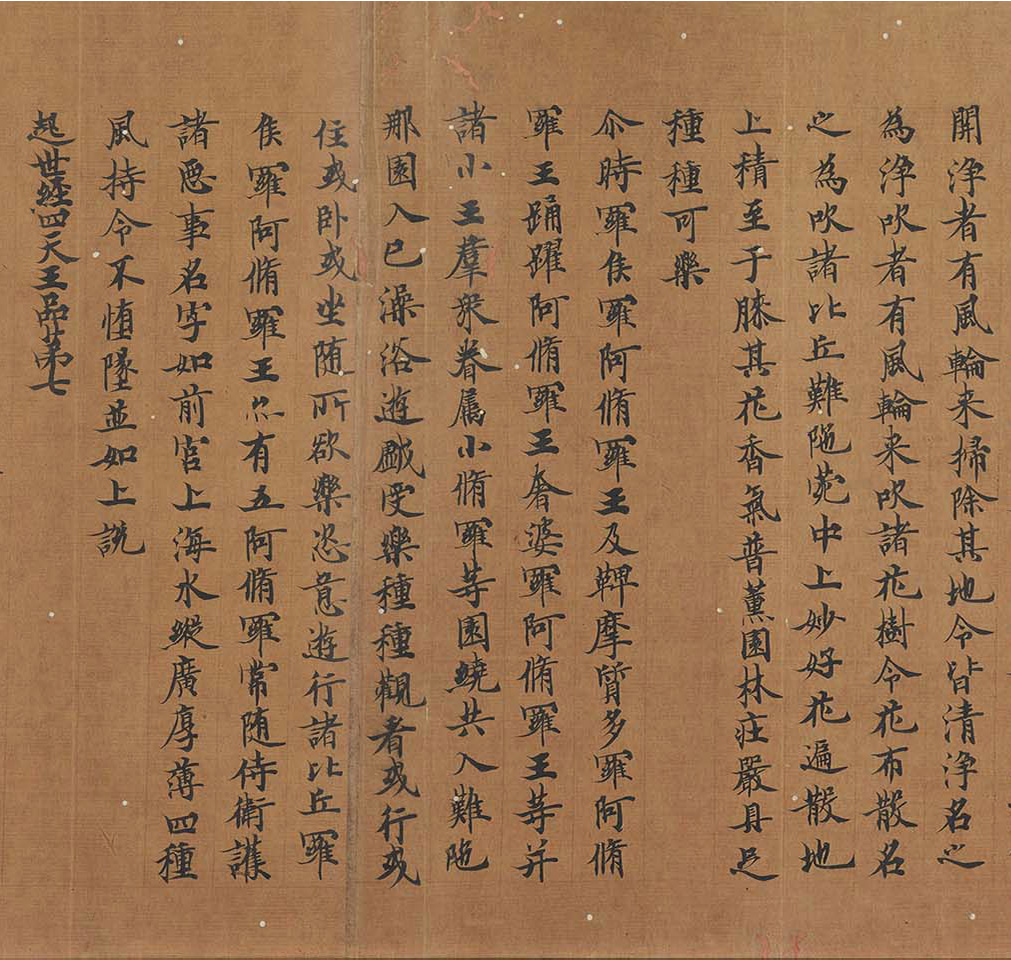 開淨者有風輪来掃除其地令皆清淨名之
為淨吹者有風輪来吹諸花樹令花布散名
之為吹諸比丘難陁菀中上妙好花遍散地
上積至于膝其花香氣普薰園林庄嚴具足
種種可樂
尒時羅侯羅阿脩羅王及鞞摩質多羅阿脩
羅王踊躍阿脩羅王奢婆羅阿脩羅王等并
諸小王羣衆眷属小脩羅等圍繞共入難陁
那園入已澡浴遊戯受樂種種觀看或行或
住或卧或坐随所欲樂恣意遊行諸比丘羅
侯羅阿脩羅王亦有五阿脩羅常随侍衛護
諸惡事名字如前宮上海水縱廣厚薄四種
風持令不堕墜並如上說
起世經四天王品苐七